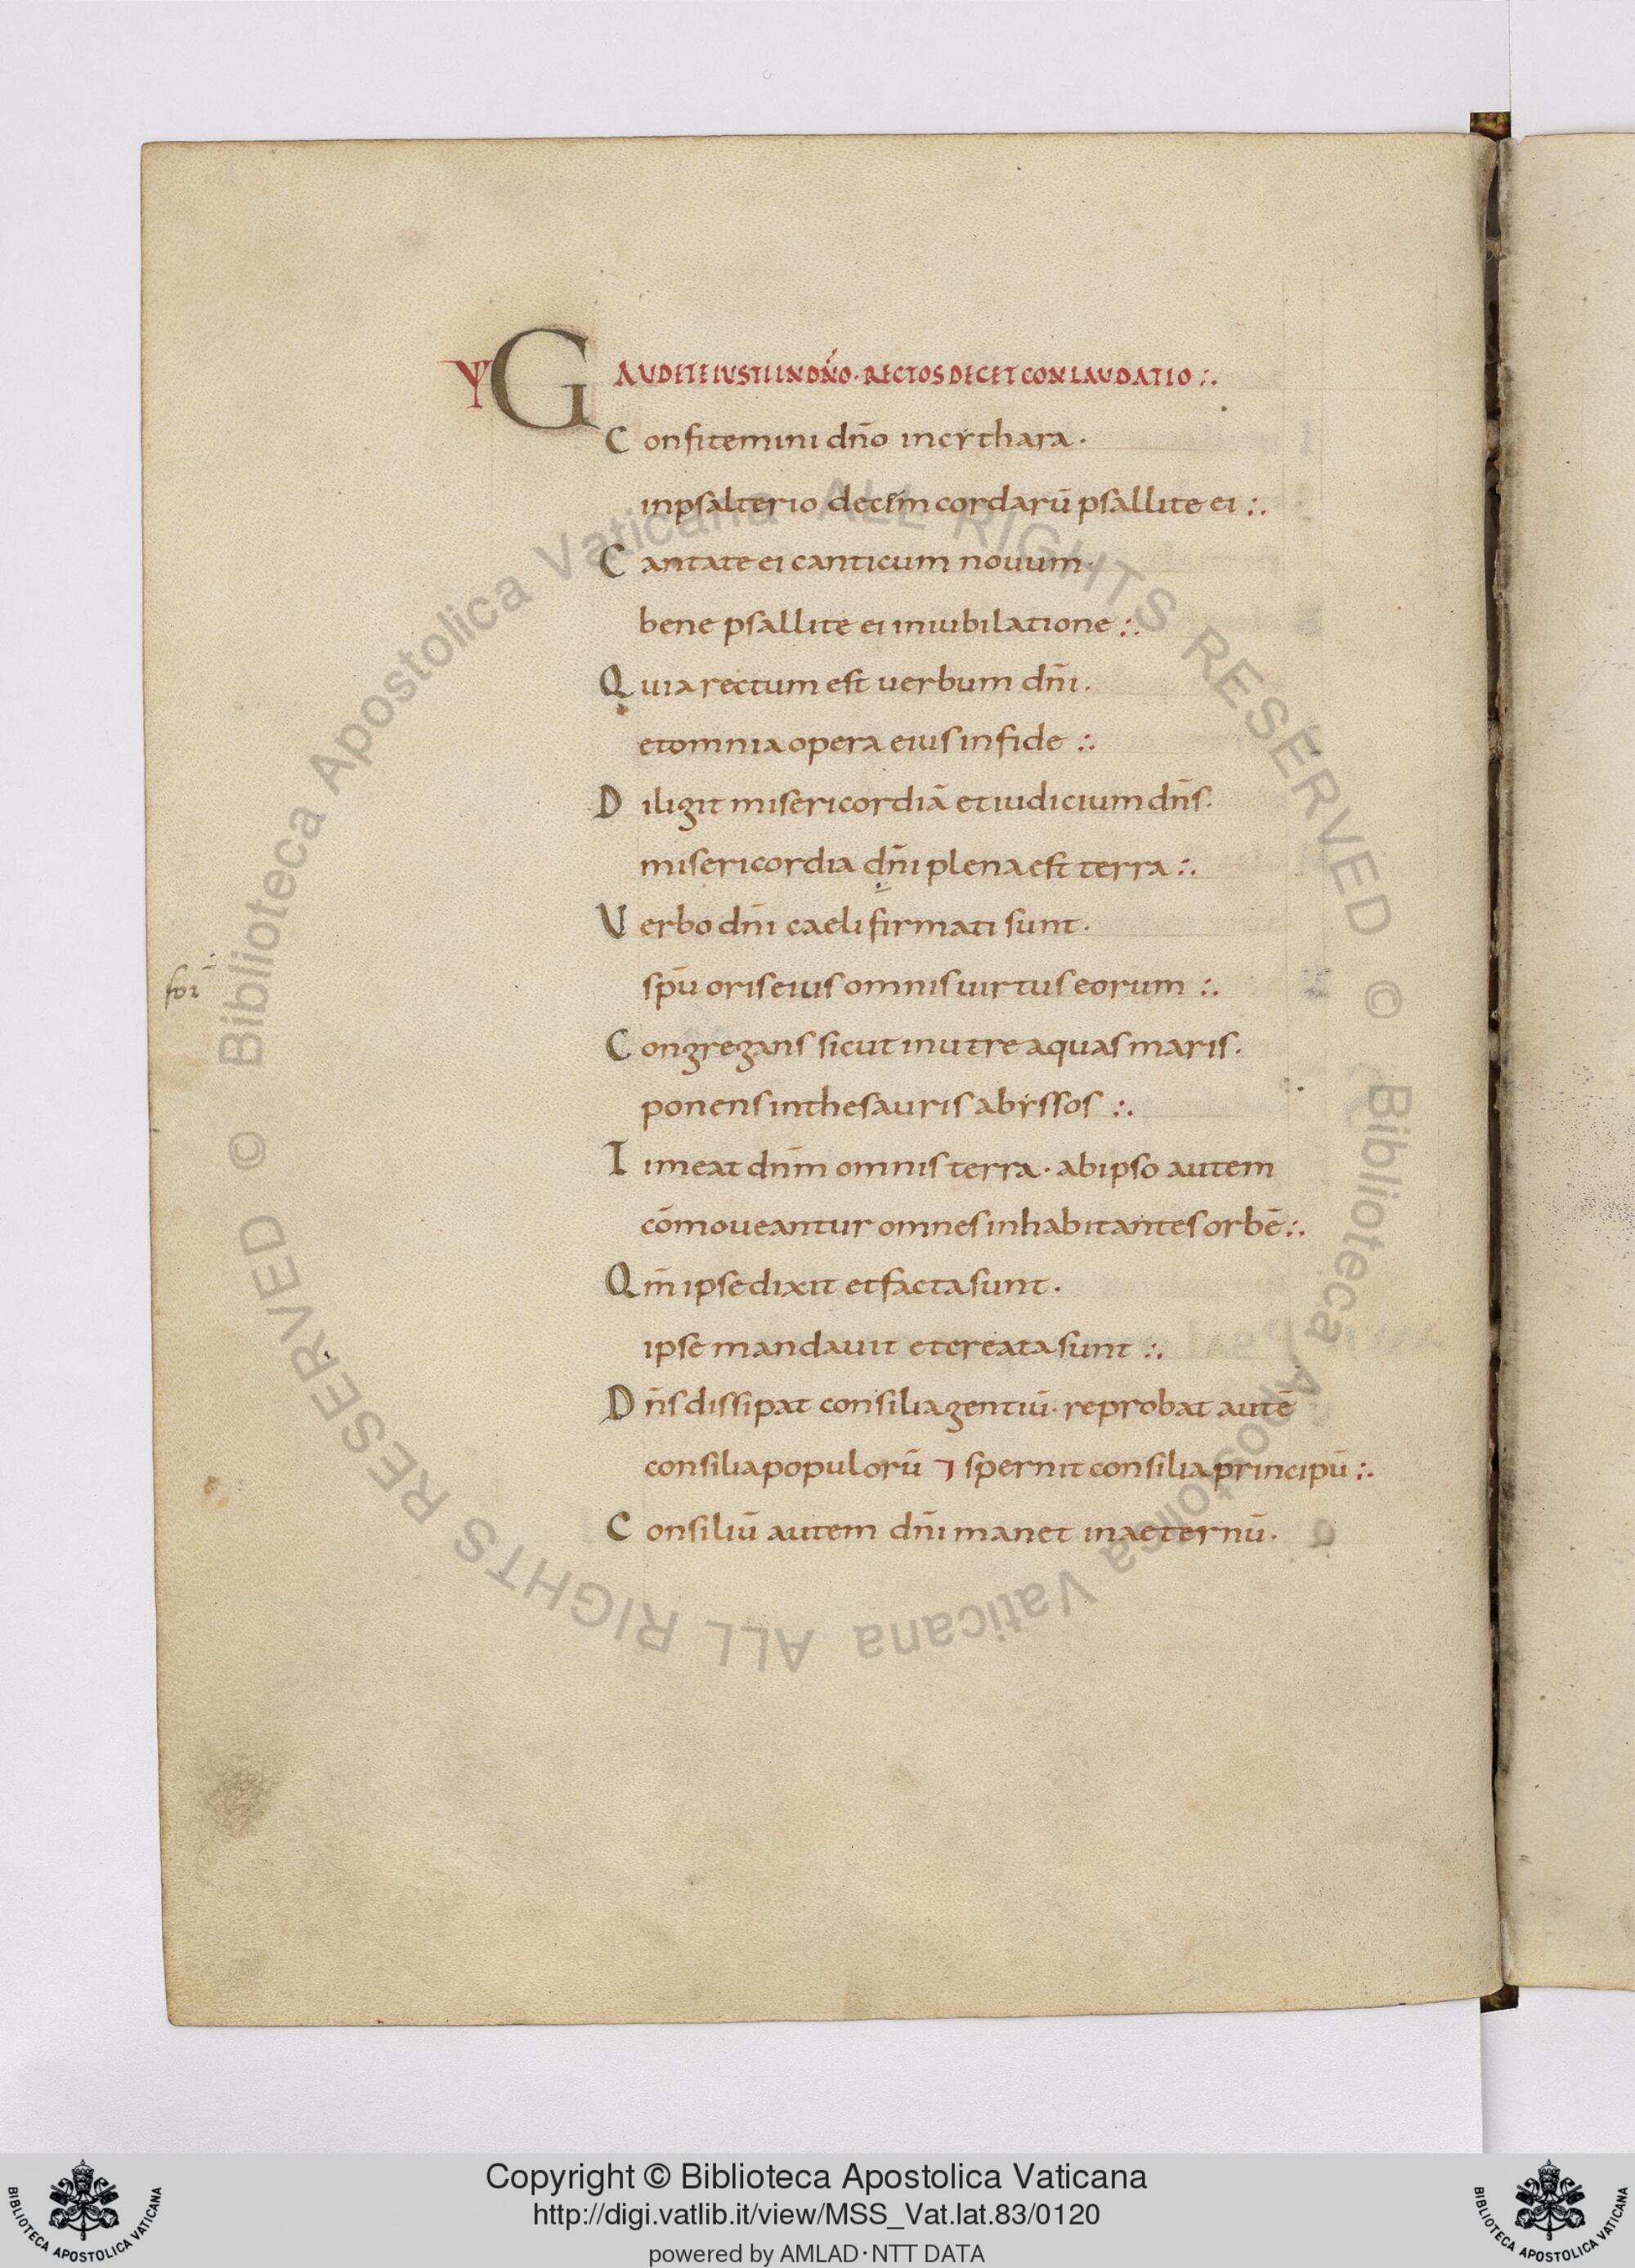 Ψ GAUDETE IUSTI IN DÑO · RECTOS DECET CONLAUDATIO :.
Confitemini dño in cythara ·
in psalterio decim cordarū psallite ei :.
Cantate ei canticum nouum ·
bene psallite ei in iubilatione :.
Quia rectum est uerbum dñi ·
et omnia opera eius in fide :.
Diligit misericordiā et iudicium dñs ·
misericordia dñi plena est terra :.
Verbo dñi caeli firmati sunt ·
sp̄u oris eius omnis uirtus eorum :.
Congregans sicut in utre aquas maris ·
ponens in thesauris abyssos :.
Timeat dñm omnis terra · ab ipso autem
cōmoueantur omnes inhabitantes orbē :.
Qm̄ ipse dixit et facta sunt ·
ipse mandauit et creata sunt :.
Dñs dissipat consilia gentiū · reprobat autē
consilia populorū ⁊ spernit consilia principū :.
Consiliū autem dñi manet in aeternū ·
© Biblioteca Apostolica Vaticana ALL RIGHTS RESERVED
© Biblioteca Apostolica Vaticana ALL RIGHTS RESERVED
Copyright © Biblioteca Apostolica Vaticana
http://digi.vatlib.it/view/MSS_Vat.lat.83/0120
powered by AMLAD·NTT DATA
BIBLIOTECA APOSTOLICA VATICANA
BIBLIOTECA APOSTOLICA VATICANA